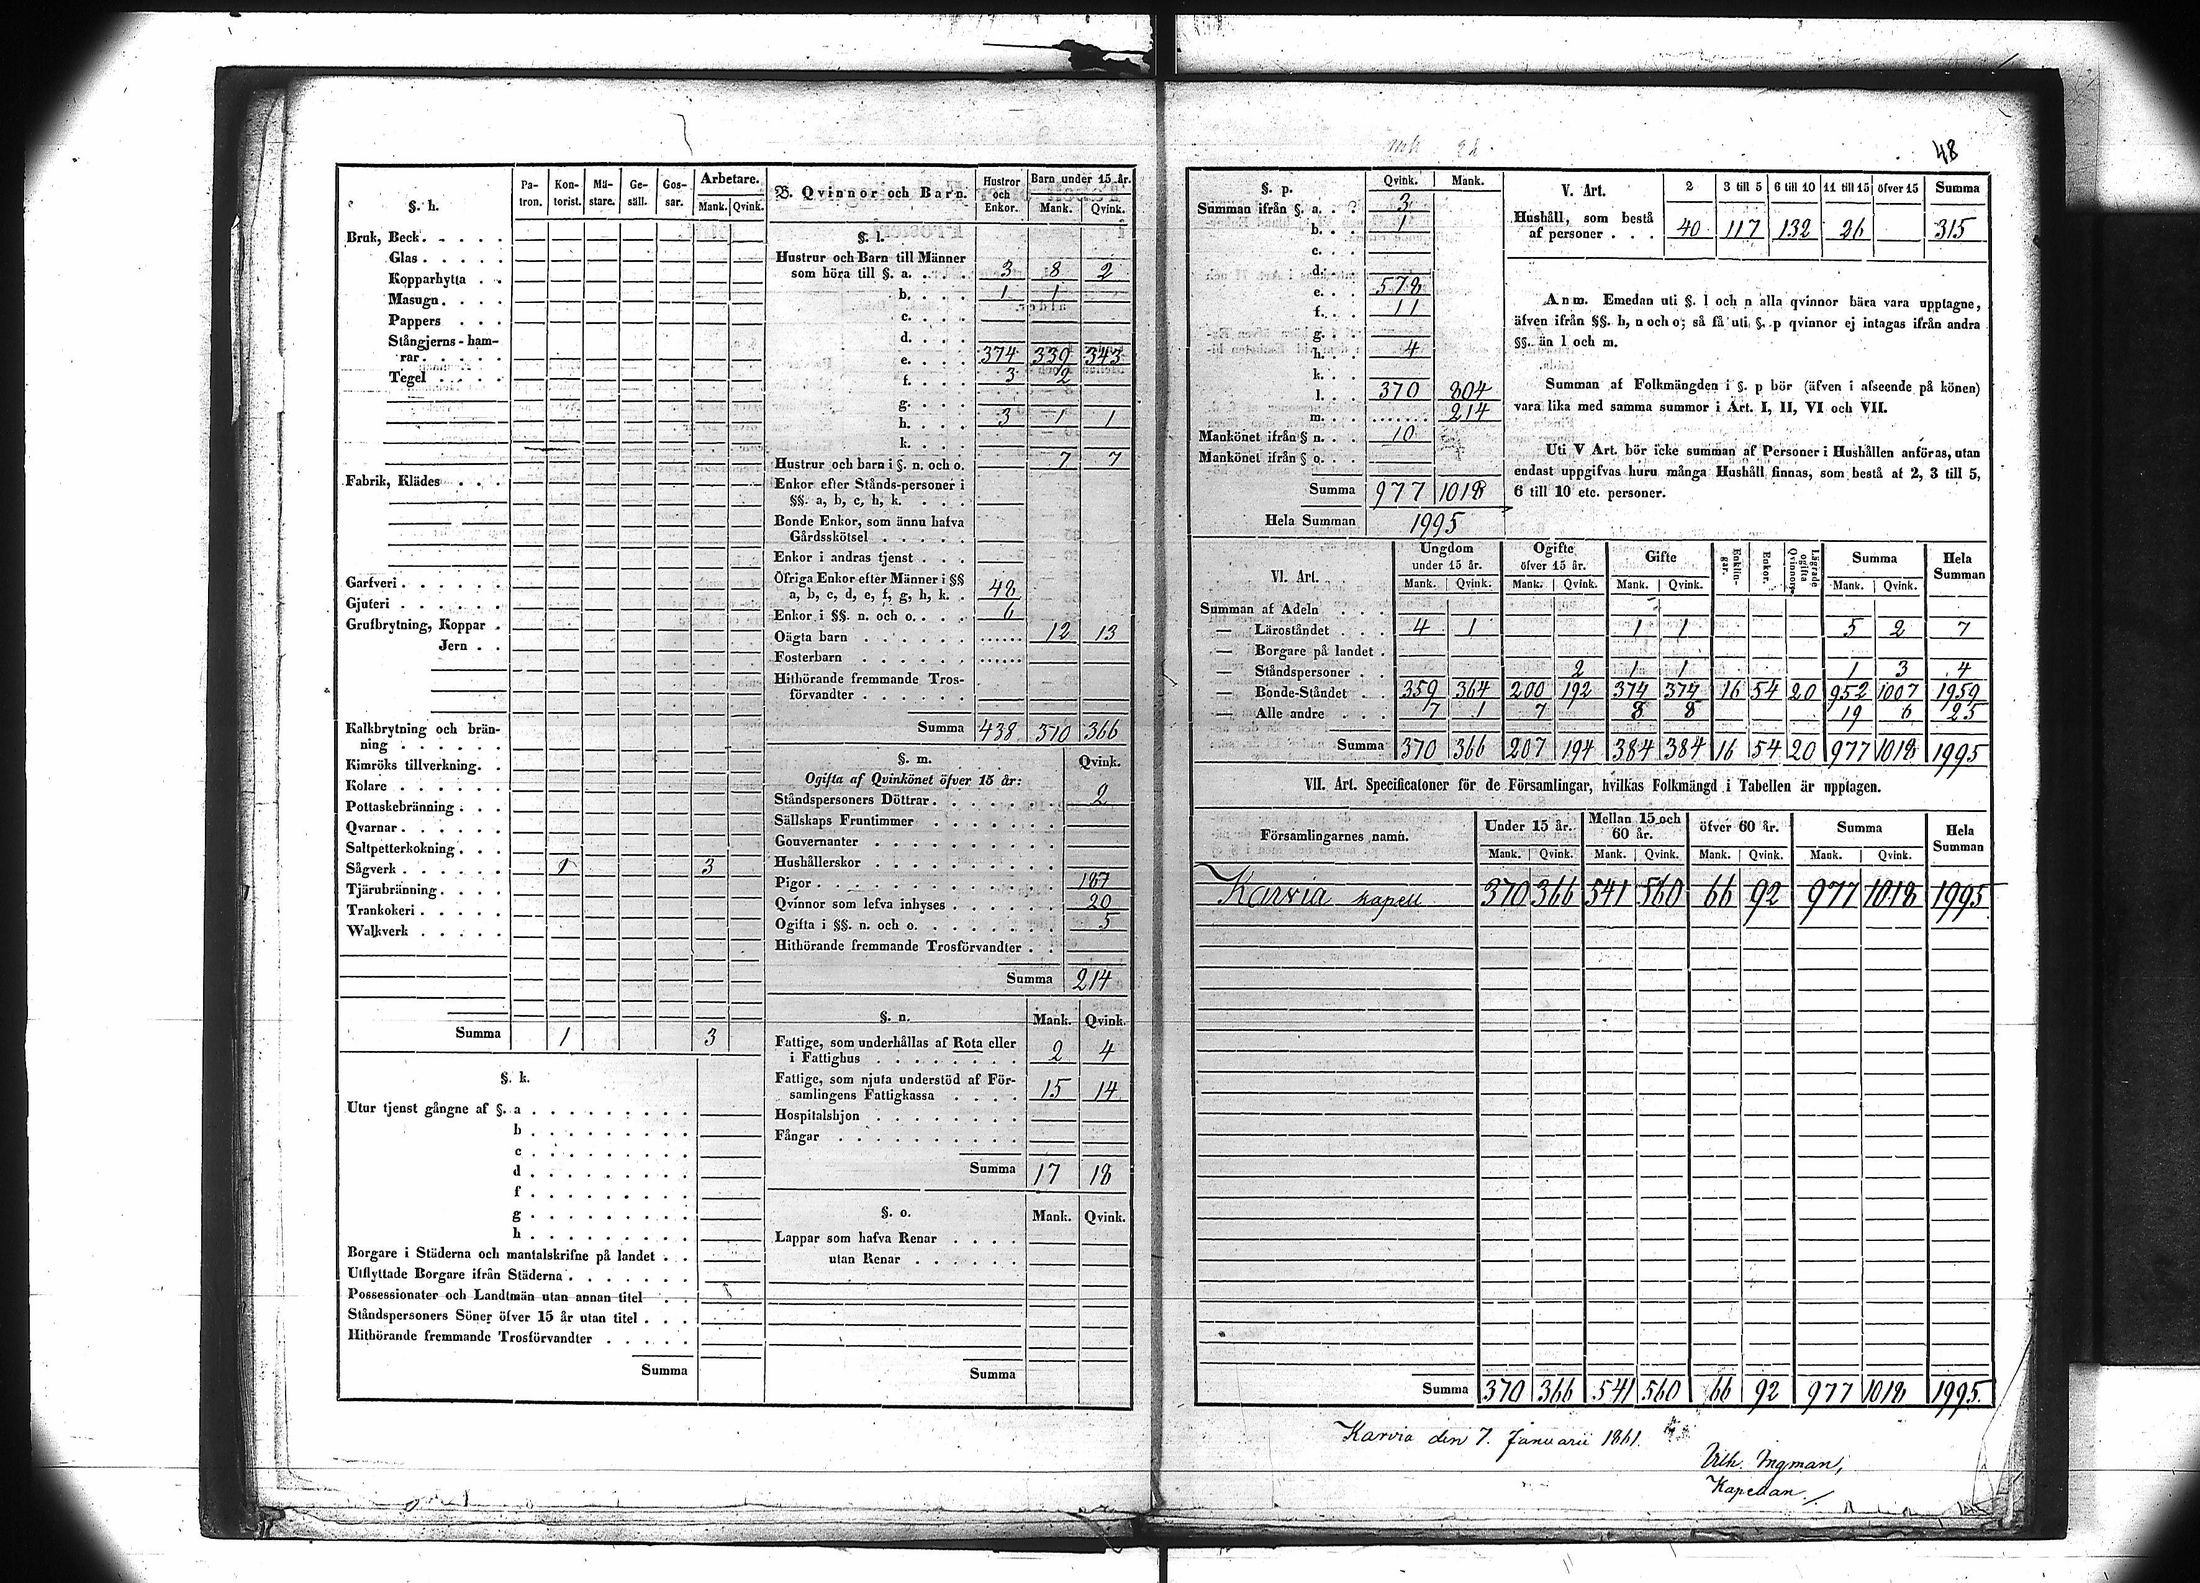 48
§. h. Patron. Kontorist. Mästare. Gesäll. Gossar. Arbetare. Mank. Qvink.
Bruk, Beck
Glas
Kopparhytta
Masugn
Pappers
Stångjerns-hamrar
Tegel
Fabrik, Klädes
Garfveri
Gjuteri
Grufbrytning, Koppar
Jern
Kalkbrytning och bränning
Kimröks tillverkning
Kolare
Pottaskebränning
Qvarnar
Saltpetterkokning
Sågverk 1 3
Tjärubränning
Trankokeri
Walkverk
Summa 1 3
§. k.
Utur tjenst gångne af §. a
b
c
d
f
g
h
Borgare i Städerna och mantalskrifne på landet
Utflyttade Borgare ifrån Städerna
Possessionater och Landtmän utan annan titel
Ståndspersoners Söner öfver 15 år utan titel
Hithörande fremmande Trosförvandter
Summa
B. Qvinnor och Barn. Hustror och Enkor. Barn under 15 år. Mank. Qvink.
§. l.
Hustrur och Barn till Männer
som höra till §. a. 3 8 2
b. 1 1
c.
d.
e. 374 339 343
f. 3 2
g.
h. 3 1 1
k.
Hustrur och barn i §. n. och o. 7 7
Enkor efter Stånds-personer i
§§. a, b, c, h, k.
Bonde Enkor, som ännu hafva
Gårdsskötsel
Enkor i andras tjenst
Öfriga Enkor efter Männer i §§
a, b, c, d, e, f, g, h, k. 48
Enkor i §§. n. och o. 6
Oägta barn 12 13
Fosterbarn
Hithörande fremmande Trosförvandter
Summa 438 370 366
§. m. Qvink.
Ogifta af Qvinkönet öfver 15 år:
Ståndspersoners Döttrar 2
Sällskaps Fruntimmer
Gouvernanter
Hushållerskor
Pigor 187
Qvinnor som lefva inhyses 20
Ogifta i §§. n. och o. 5
Hithörande fremmande Trosförvandter
Summa 214
§. n. Mank. Qvink.
Fattige, som underhållas af Rota eller
i Fattighus 2 4
Fattige, som njuta understöd af Församlingens
Fattigkassa 15 14
Hospitalshjon
Fångar
Summa 17 18
§. o. Mank. Qvink.
Lappar som hafva Renar
utan Renar
Summa
§. p. Qvink. Mank.
Summan ifrån §. a. 3
b. 1
c.
d.
e. 578
f. 11
g.
h. 4
k.
l. 370 804
m. 214
Mankönet ifrån § n. 10
Mankönet ifrån § o.
Summa 977 1018
Hela Summan 1995
V. Art. 2 3 till 5 6 till 10 11 till 15 öfver 15 Summa
Hushåll, som bestå
af personer 40 117 132 26 315
Anm. Emedan uti §. l och n alla qvinnor böra vara upptagne,
äfven ifrån §§. h, n och o; så få uti §. p qvinnor ej intagas ifrån andra
§§. än l och m.
Summan af Folkmängden i §. p bör (äfven i afseende på könen)
vara lika med samma summor i Art. I, II, VI och VII.
Uti V Art. bör icke summan af Personer i Hushållen anföras, utan
endast uppgifvas huru många Hushåll finnas, som bestå af 2, 3 till 5,
6 till 10 etc. personer.
VI. Art. Ungdom under 15 år. Ogifte öfver 15 år. Gifte Enklingar. Enkor. Lägrade ogifta Qvinnorp. Summa Hela Summan
Mank. Qvink. Mank. Qvink. Mank. Qvink. Mank. Qvink.
Summan af Adeln
— Läroståndet 4 1 1 1 5 2 7
— Borgare på landet
— Ståndspersoner 2 1 1 1 3 4
— Bonde-Ståndet 359 364 200 192 374 374 16 54 20 952 1007 1959
— Alle andre 7 1 7 8 8 19 6 25
Summa 370 366 207 194 384 384 16 54 20 977 1018 1995
VII. Art. Specificatoner för de Församlingar, hvilkas Folkmängd i Tabellen är upptagen.
Församlingarnes namn. Under 15 år. Mellan 15 och 60 år. öfver 60 år. Summa Hela Summan
Mank. Qvink. Mank. Qvink. Mank. Qvink. Mank. Qvink.
Karvia kapell 370 366 541 560 66 92 977 1018 1995
Summa 370 366 541 560 66 92 977 1018 1995.
Karvia den 7. Januarii 1861.
Vilh. Ingman,
Kapellan